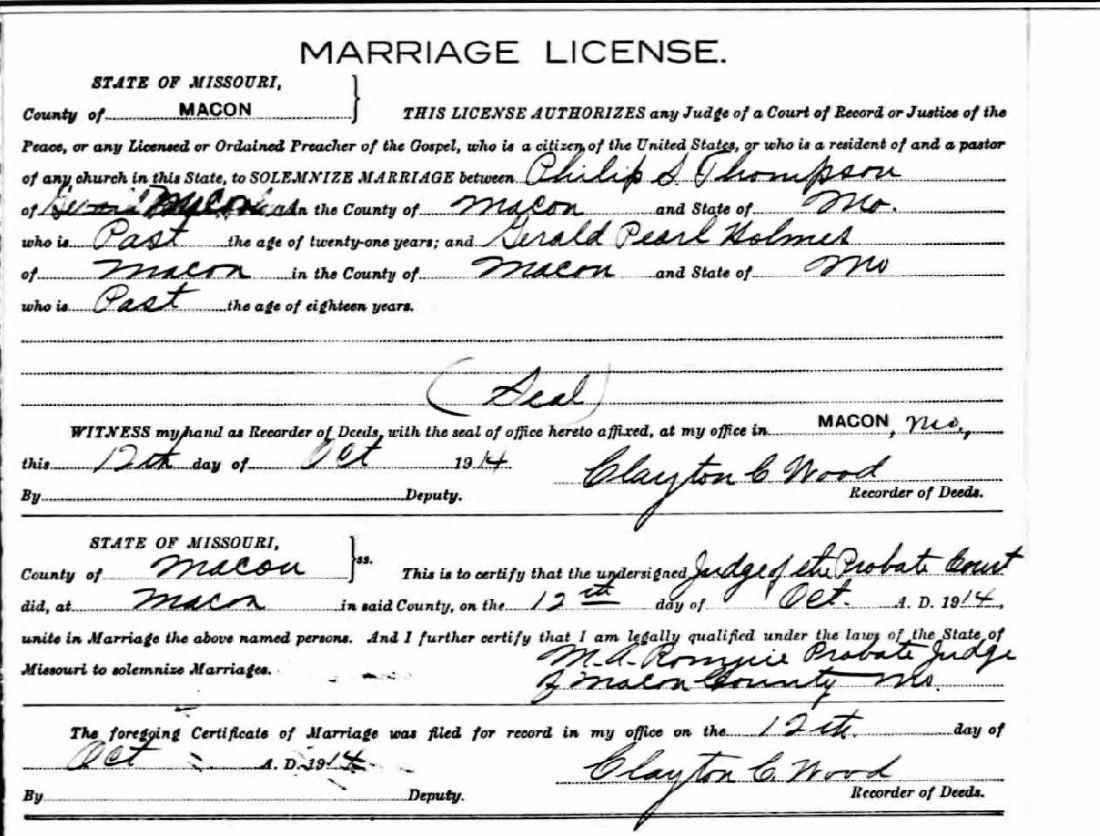 MARRIAGE LICENSE.
STATE OF MISSOURI,
County of MACON } THIS LICENSE AUTHORIZES any Judge of a Court of Record or Justice of the
Peace, or any Licensed or Ordained Preacher of the Gospel, who is a citizen of the United States, or who is a resident of and a pastor
of any church in this State, to SOLEMNIZE MARRIAGE between Philip S Thompson
of Macon in the County of Macon and State of Mo.
who is Past the age of twenty-one years; and Gerald Pearl Holmes
of Macon in the County of Macon and State of Mo
who is Past the age of eighteen years.
(Seal)
WITNESS my hand as Recorder of Deeds, with the seal of office hereto affixed, at my office in MACON, Mo.,
this 12th day of Oct 1914. Clayton C Wood
By Deputy. Recorder of Deeds.
STATE OF MISSOURI,
County of Macon } ss. This is to certify that the undersigned Judge of the Probate Court
did, at Macon in said County, on the 12th day of Oct. A. D. 1914,
unite in Marriage the above named persons. And I further certify that I am legally qualified under the laws of the State of
Missouri to solemnize Marriages. M. A. Romjue Probate Judge
of Macon County Mo.
The foregoing Certificate of Marriage was filed for record in my office on the 12th. day of
Oct A. D. 1914 Clayton C. Wood
By Deputy. Recorder of Deeds.